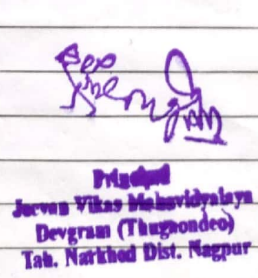 Principal
Jeevan Vikas Mahavidyalaya
Devgram (Thugaondeo)
Tah. Narkhed Dist. Nagpur